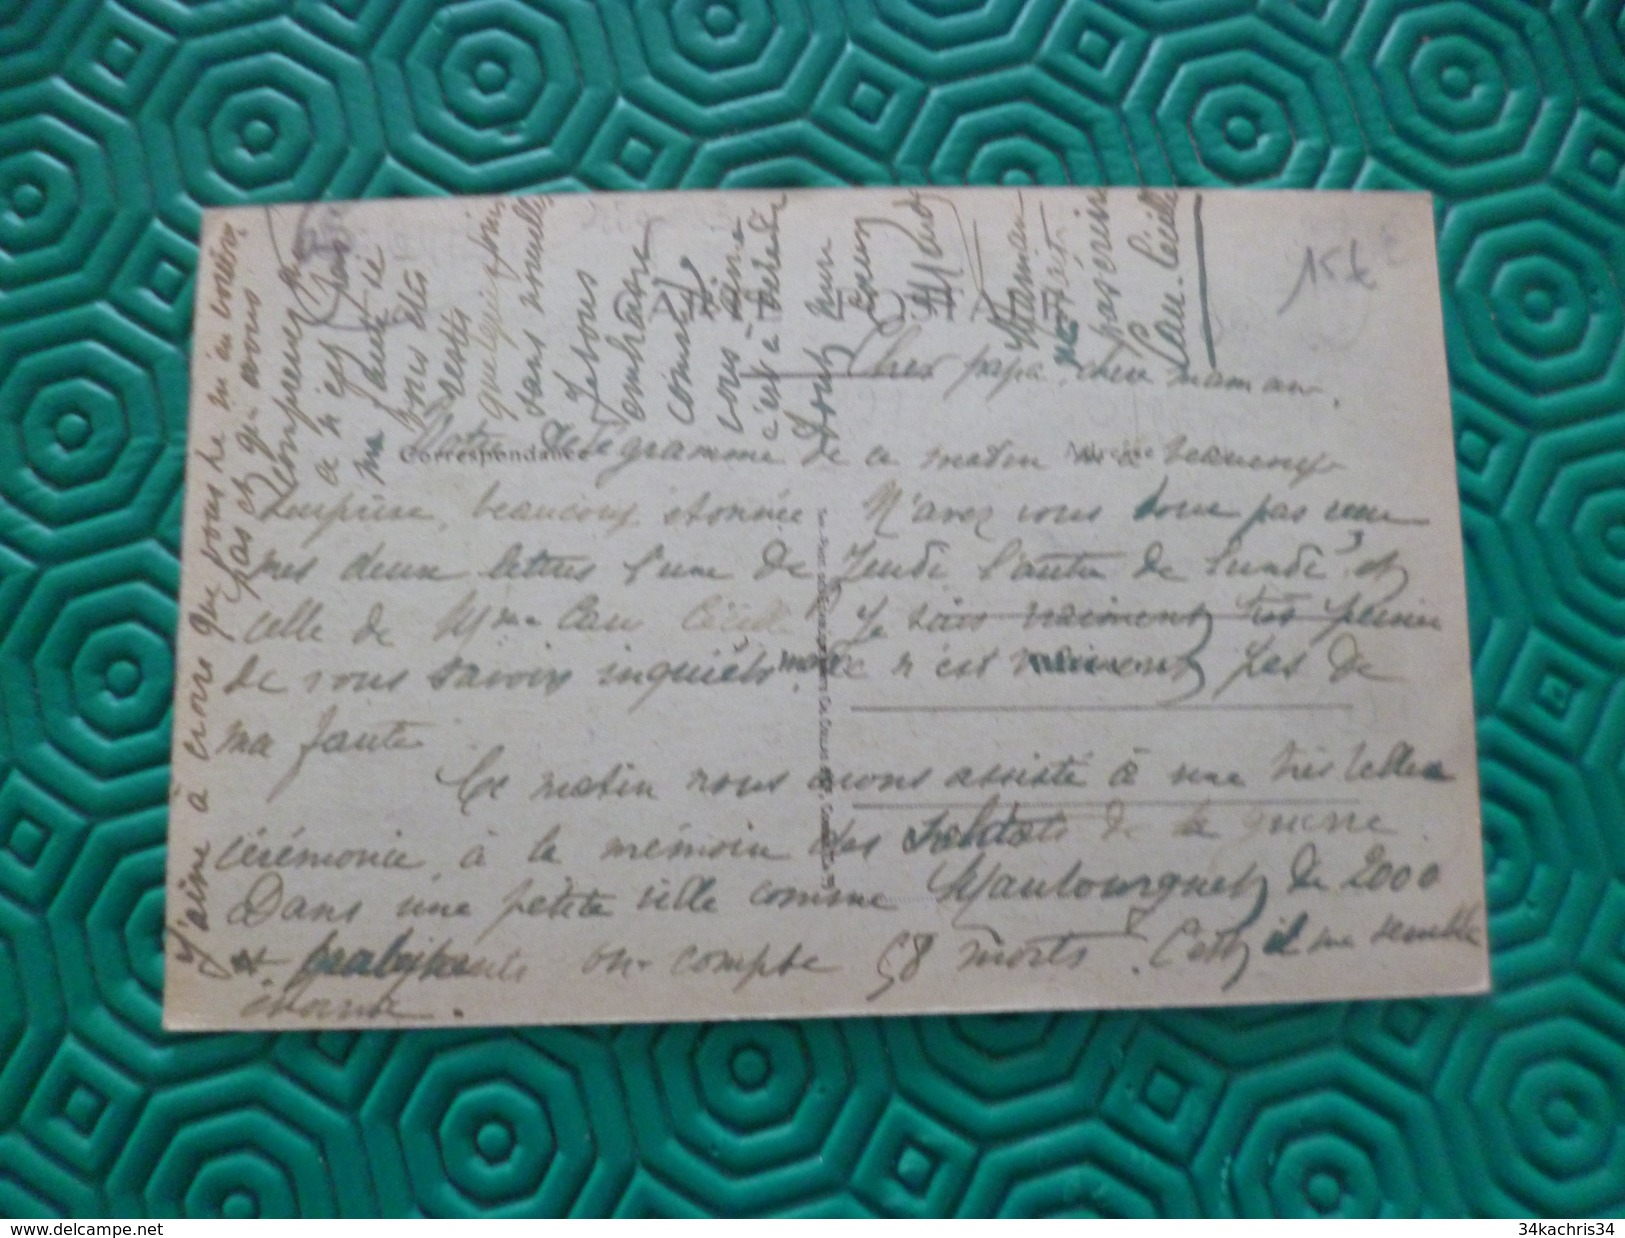 CARTE POSTALE
Cher papa, chère maman,
Correspondance
Adresse
Votre télégramme de ce matin m'a beaucoup
surprise, beaucoup étonnée. N'avez vous donc pas reçu
mes deux lettres l'une de Jeudi l'autre de Lundi, et
celle de Mme Cau Cécile ? Je suis vraiment très peinée
de vous savoir inquiets mais ce n'est vraiment pas de
ma faute
Ce matin nous avons assisté à une très belle
cérémonie, à la mémoire des soldats de la guerre.
Dans une petite ville comme Maubourguet de 2000
habitants on compte 58 morts. C'est il me semble
énorme.
J'aime à croire que vous ne m'en voulez
pas et que vous
comprenez
ce n'est pas
ma faute si
vous êtes
restés
quelques jours
sans nouvelles
Je vous
embrasse
comme
vous aime
c'est à dire de
tout mon
cœur
Maman
n'est
pas
Cau. Cécile
15€
delcampe.net
34kachris34